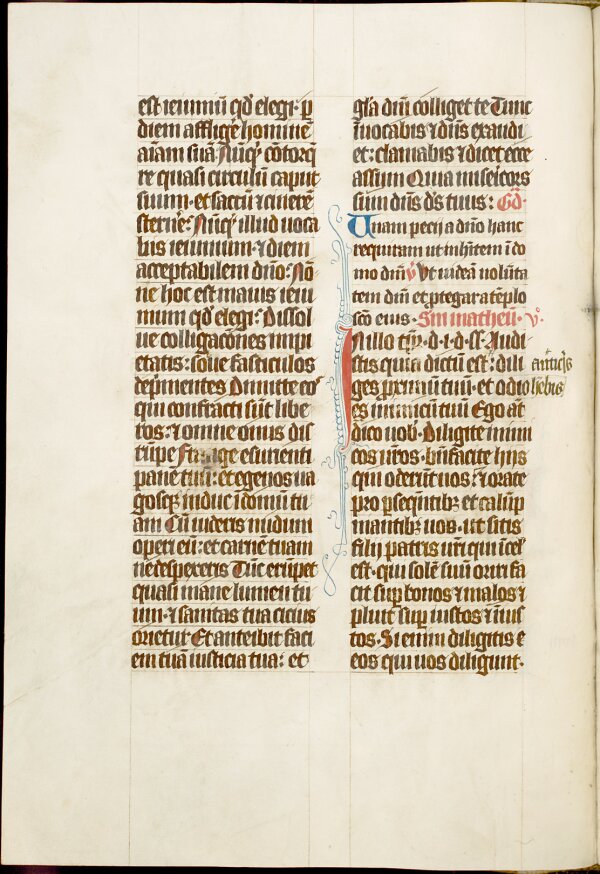 est ieiuniũ qd̃ elegi · p
diem affligẽ hominẽ
aĩam suã Nũq̃ cõtorq̃
re quasi circulũ caput
suum · et saccũ ⁊ cinerẽ
sternẽ: Nũq̃ illud uoca
bis ieiunium · ⁊ diem
acceptabilem dño: Nõ
ne hoc est magis ieiu
nium qd̃ elegi: Dissol
ue colligacões impi
etatis: solue fasticulos
dep̃mentes Dimitte eoˢ
qui confracti sũt libe
ros: ⁊ omne onus dis
rũpe Frãge esurienti
panẽ tuũ: et egenos ua
gosq̃ induc ĩ domũ tu
am Cũ uideris nudum
operi eũ: et carnẽ tuam
ne despexeris Tũc erũpet
quasi mane lumen tu
um · ⁊ sanitas tua cicius
orietur Et anteibit faci
em tuã iusticia tua: et
gl̃a dñi colliget te Tunc
ĩuocabis ⁊ dñs exaudi
et: clamabis ⁊ dicet ecce
assum Quia mise͛icors
sum dñs ds̃ tuus: Gd̃ ·
Unam pecij a dño hanc
requiram ut inh̃item ĩ do
mo dñi ỹ Vt uideã uolũta
tem dñi et ptegar a tẽplo
sc̃o eius · Sm̃ matheũ · v̊ ·
In illo tp̃r · d · i · d · sꝭ · Audi
stis quia dictũ est: dili
ges primũ tuũ · et odio
antiq̃s
hẽbis
es inimicũ tuũ Ego aũt
dico uob̃ · Diligite inimi
cos ur̃os · bñfacite hijs
qui oderũt uos: ⁊ orate
pro p̃seqũtibꝫ et calũp
niantibꝫ uos · ut sitis
filij patris ur̃i qui ĩ cel̃
est · qui solẽ suũ oriri fa
cit sup̃ bonos ⁊ malos ⁊
pluit sup̃ iustos ⁊ ĩius
tos · Si enim diligitis e
eos qui uos diligunt ·